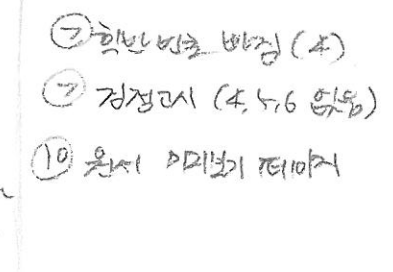 ⑦ 학반 번호 빠짐 (4)
⑦ 검정고시 (4, 5, 6 있음)
⑩ 원서 미리보기 페이지